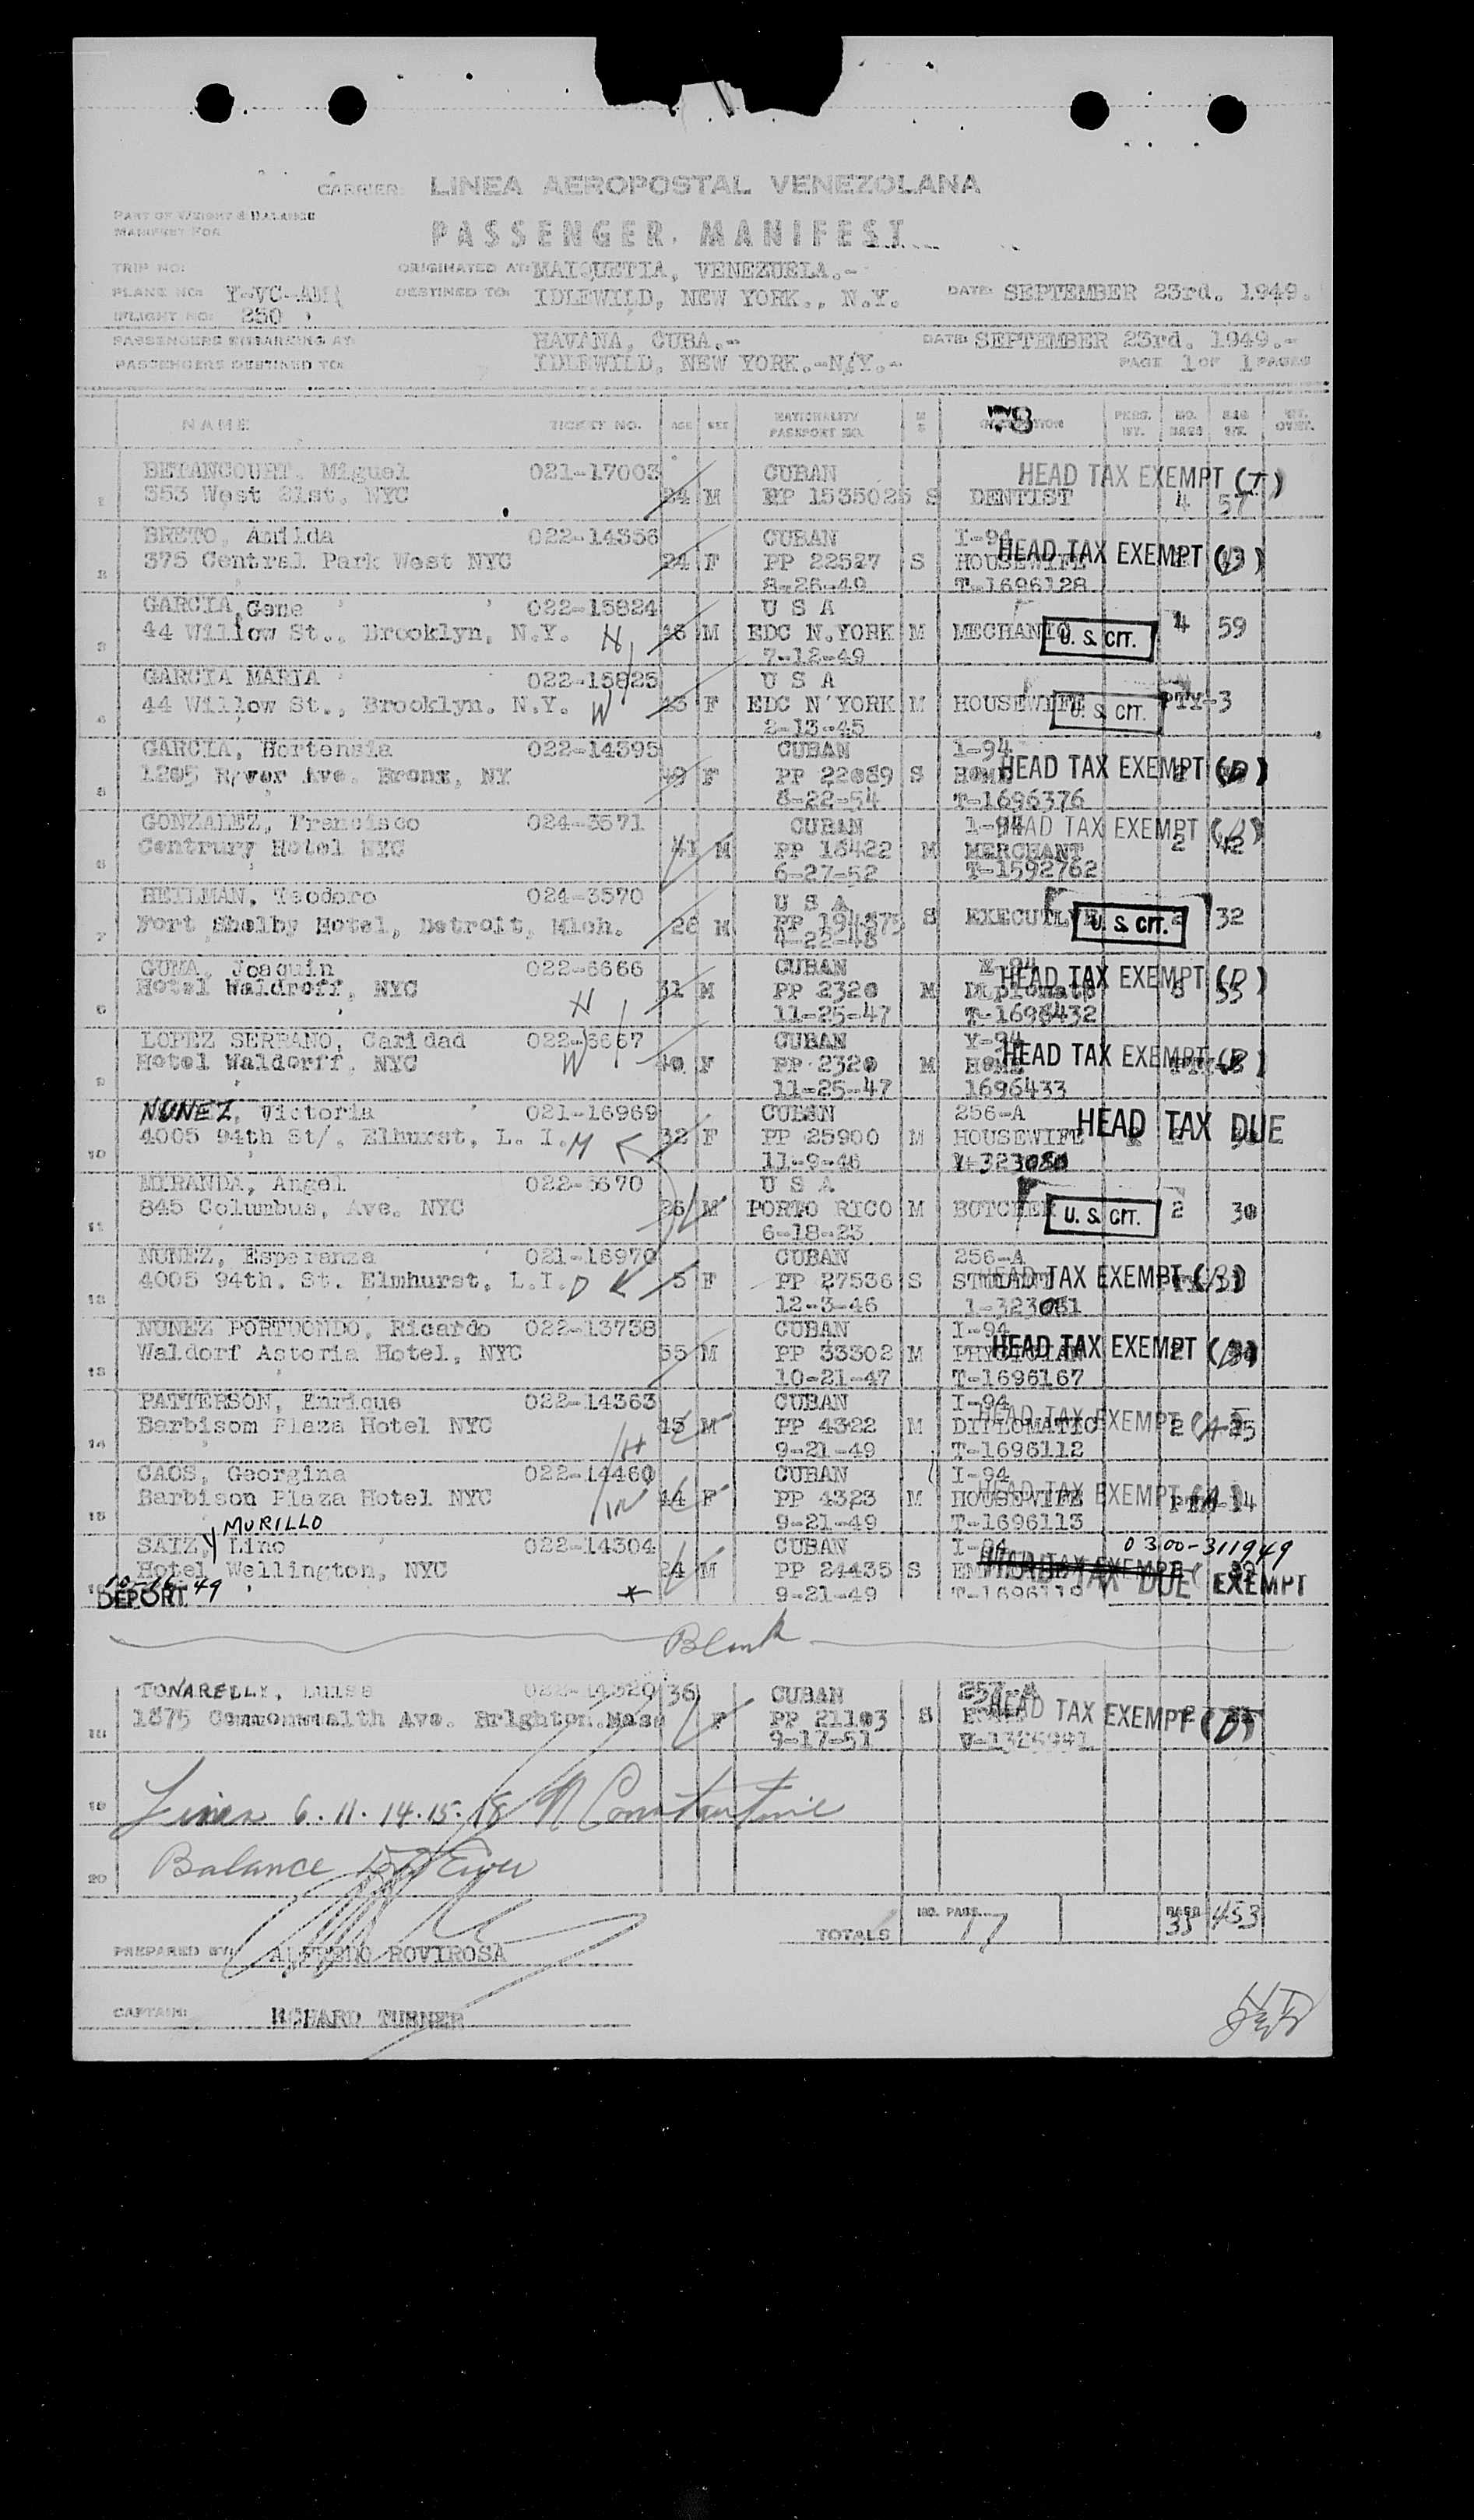 CARRIER: LINEA AEROPOSTAL VENEZOLANA
PART OF WEIGHT & BALANCE
MANIFEST FOR
PASSENGER MANIFEST
TRIP NO:
ORIGINATED AT: MAIQUETIA, VENEZUELA.-
PLANE NO: Y-VC-AM
DESTINED TO: IDLEWILD, NEW YORK., N.Y. DATE: SEPTEMBER 23rd. 1949.
FLIGHT NO: 250
PASSENGERS EMBARKING AT: HAVANA, CUBA.- DATE: SEPTEMBER 23rd. 1949.-
PASSENGERS DESTINED TO: IDLEWILD, NEW YORK.-N.Y.- PAGE 1 OF 1 PAGES
NAME TICKET NO. AGE SEX NATIONALITY PASSPORT NO. M S PERS. WT. NO. BAGS BAG WT. WT. OVER.
BETANCOURT, Miguel 021-17003 CUBAN HEAD TAX EXEMPT (T)
1 353 West 21st. NYC 24 M RP 1535025 S DENTIST 4 57
BRETO, Amilda 022-14356 CUBAN I-94
2 375 Central Park West NYC 24 F PP 22527 S HOUSEWIFE HEAD TAX EXEMPT
8-26-49 T-1696128
GARCIA, Gene 022-15824 U S A
3 44 Willow St., Brooklyn, N.Y. H M EDC N.YORK M MECHANIC U. S. CIT. 4 59
7-12-49
GARCIA MARIA 022-15825 U S A
4 44 Willow St., Brooklyn. N.Y. W F EDC N YORK M HOUSEWIFE U. S. CIT. PTY-3
2-13-45
GARCIA, Hortensia 022-14395 CUBAN 1-94
5 1205 River Ave. Bronx, NY 49 F PP 22089 S HOME HEAD TAX EXEMPT (D)
8-22-54 T-1696376
GONZALEZ, Francisco 024-3571 CUBAN 1-94 HEAD TAX EXEMPT (D)
6 Centrury Hotel NYC 41 M PP 16422 M MERCHANT 2 42
6-27-52 T-1592762
HEILMAN, Teodoro 024-3570 U S A
7 Fort Shelby Hotel, Detroit, Mich. 28 M PP 194375 S EXECUTIVE U. S. CIT. 2 32
4-22-48
GUMA, Joaquin 022-6666 CUBAN
8 Hotel Waldroff, NYC H 31 M PP 2320 M Diplomate HEAD TAX EXEMPT (D)
11-25-47 T-1696432
LOPEZ SERRANO, Caridad 022-6667 CUBAN
9 Hotel Waldorff, NYC W 40 F PP 2320 M HOME HEAD TAX EXEMPT
11-25-47 1696433
NUNEZ, Victoria 021-16969 CUBAN 256-A
10 4005 94th St/. Elhurst, L. I. M 32 F PP 25900 M HOUSEWIFE HEAD TAX DUE
11-9-46
MIRANDA, Angel 022-5670 U S A
11 845 Columbus, Ave. NYC 26 M PORTO RICO M BUTCHER U. S. CIT. 2 30
6-18-23
NUNEZ, Esperanza 021-16970 CUBAN 256-A
12 4005 94th. St. Elmhurst, L.I. D 5 F PP 27536 S STUDENT HEAD TAX EXEMPT
12-3-46 1-323051
NUNEZ PORTUONDO, Ricardo 022-13738 CUBAN I-94
13 Waldorf Astoria Hotel, NYC 55 M PP 33302 M PHYSICIAN HEAD TAX EXEMPT
10-21-47 T-1696167
PATTERSON, Enrique 022-14363 CUBAN I-94
14 Barbisom Plaza Hotel NYC H 45 M PP 4322 M DIPLOMATIC HEAD TAX EXEMPT 2
9-21-49 T-1696112
CAOS, Georgina 022-14460 CUBAN I-94
15 Barbison Plaza Hotel NYC W 44 F PP 4323 M HOUSEWIFE HEAD TAX EXEMPT
9-21-49 T-1696113
y MURILLO
SAIZ, Lino 022-14304 CUBAN I-94 0300-311949
Hotel Wellington, NYC 24 M PP 24435 S HEAD TAX EXEMPT
10-16-49 DEPORT. 9-21-49 HEAD TAX DUE EXEMPT
Blank
TONARELLY, Luisa 022-14320 36 CUBAN 257-A
18 1875 Commonwealth Ave. Brighton.Mass F PP 21103 S HEAD TAX EXEMPT (D)
9-17-51
19 Lines 6. 11. 14. 15. 18 N Constantine
20 Balance
TOTALS NO. PASS. 17 BAGS 35 453
PREPARED BY: ALFREDO ROVIROSA
CAPTAIN: RCHARD TURNER